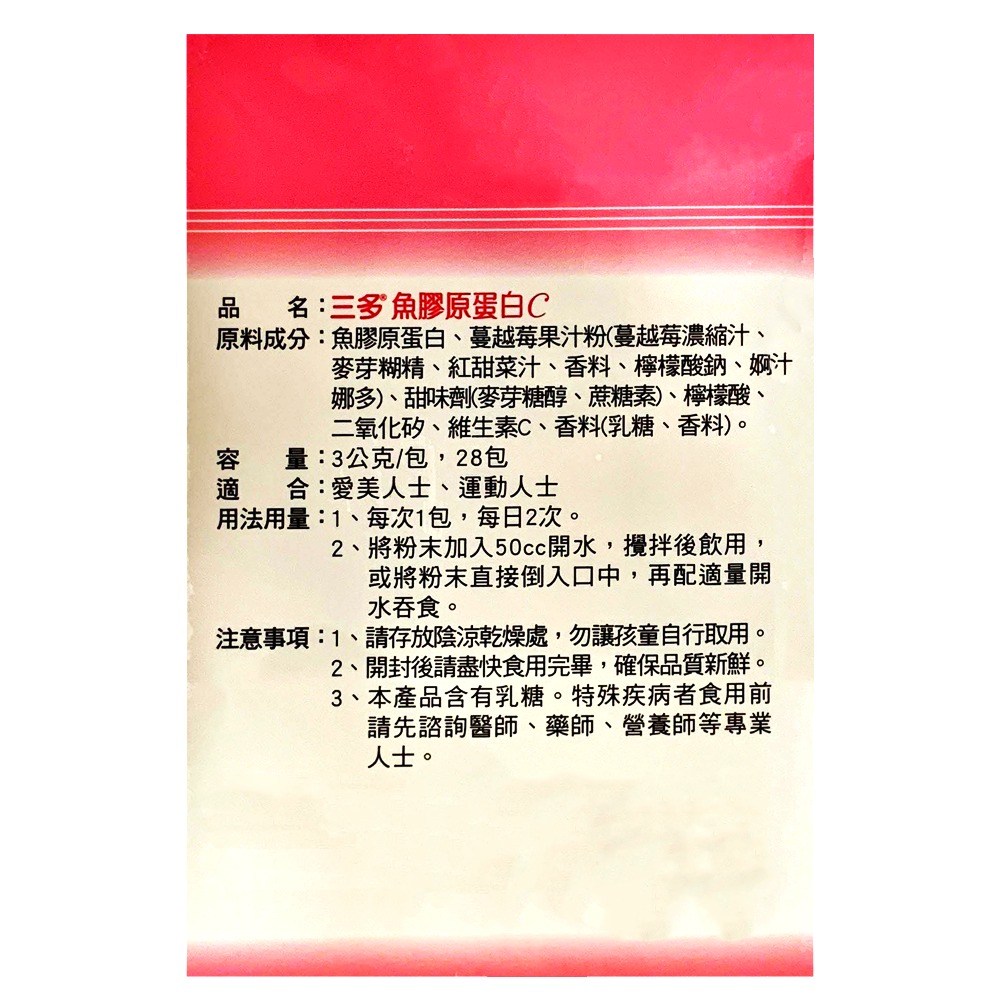 品　　名：三多®魚膠原蛋白C
原料成分：魚膠原蛋白、蔓越莓果汁粉(蔓越莓濃縮汁、
麥芽糊精、紅甜菜汁、香料、檸檬酸鈉、婀汁
娜多)、甜味劑(麥芽糖醇、蔗糖素)、檸檬酸、
二氧化矽、維生素C、香料(乳糖、香料)。
容　　量：3公克/包，28包
適　　合：愛美人士、運動人士
用法用量：1、每次1包，每日2次。
2、將粉末加入50cc開水，攪拌後飲用，
或將粉末直接倒入口中，再配適量開
水吞食。
注意事項：1、請存放陰涼乾燥處，勿讓孩童自行取用。
2、開封後請盡快食用完畢，確保品質新鮮。
3、本產品含有乳糖。特殊疾病者食用前
請先諮詢醫師、藥師、營養師等專業
人士。